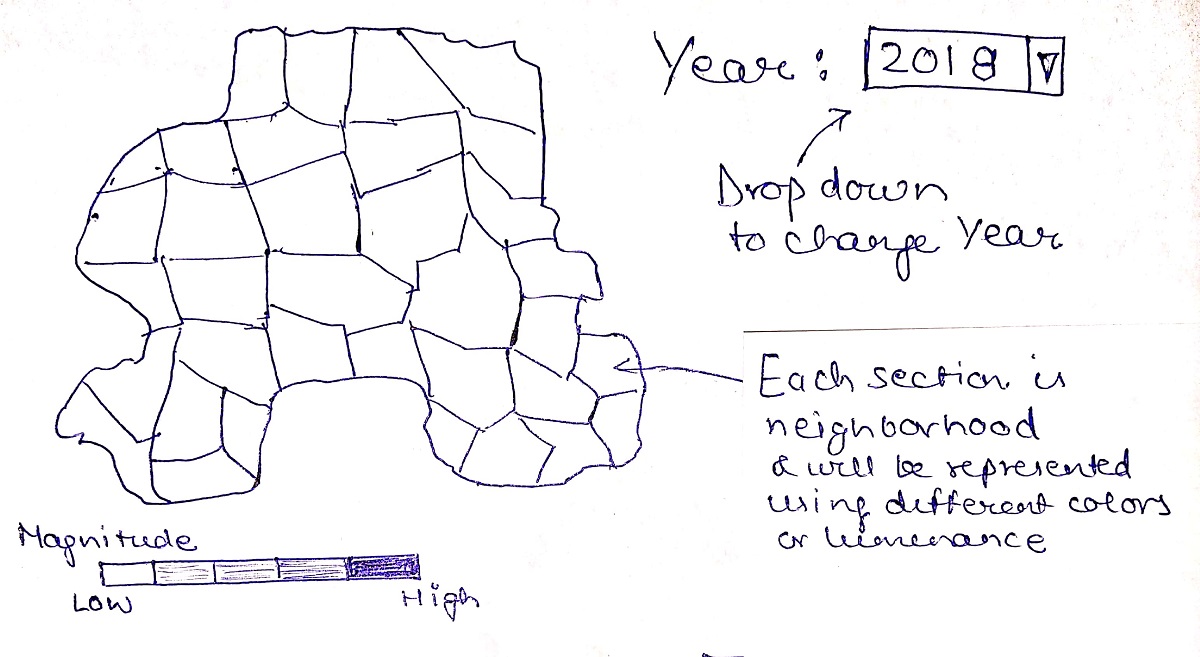 Year: 2018
Drop down
to change Year
Each section is
neighborhood
& will be represented
using different colors
or luminance
Magnitude
Low High